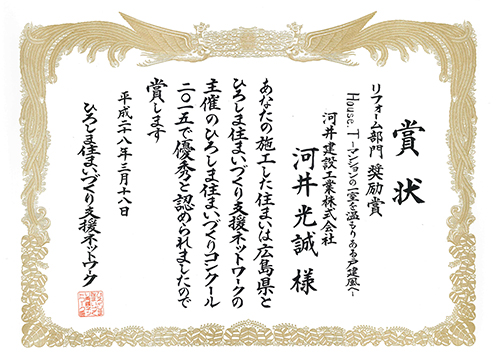 賞状
リフォーム部門 奨励賞
House.T-マンションの一室を温もりある戸建風へ-
河井建設工業株式会社
河井光誠 様
あなたの施工した住まいは広島県と
ひろしま住まいづくり支援ネットワークの
主催のひろしま住まいづくりコンクール
二〇一五で優秀と認められましたので
賞します
平成二十八年三月十八日
ひろしま住まいづくり支援ネットワーク